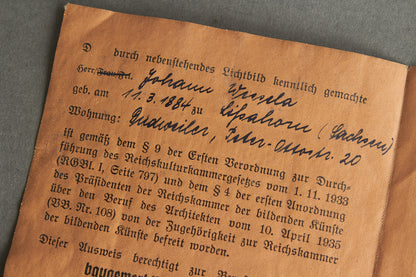 D durch nebenstehendes Lichtbild kenntlich gemachte
Herr/Frau/Frl. Johann Wresela
geb. am 11.3.1884 zu (Sachsen)
Wohnung: Peter-Ottostr. 20
ist gemäß dem § 9 der Ersten Verordnung zur Durch-
führung des Reichskulturkammergesetzes vom 1. 11. 1933
(RGBl. I, Seite 797) und dem § 4 der ersten Anordnung
des Präsidenten der Reichskammer der bildenden Künste
über den Beruf des Architekten vom 10. April 1935
(VB. Nr. 108) von der Zugehörigkeit zur Reichskammer
der bildenden Künste befreit worden.
Dieser Ausweis berechtigt zur